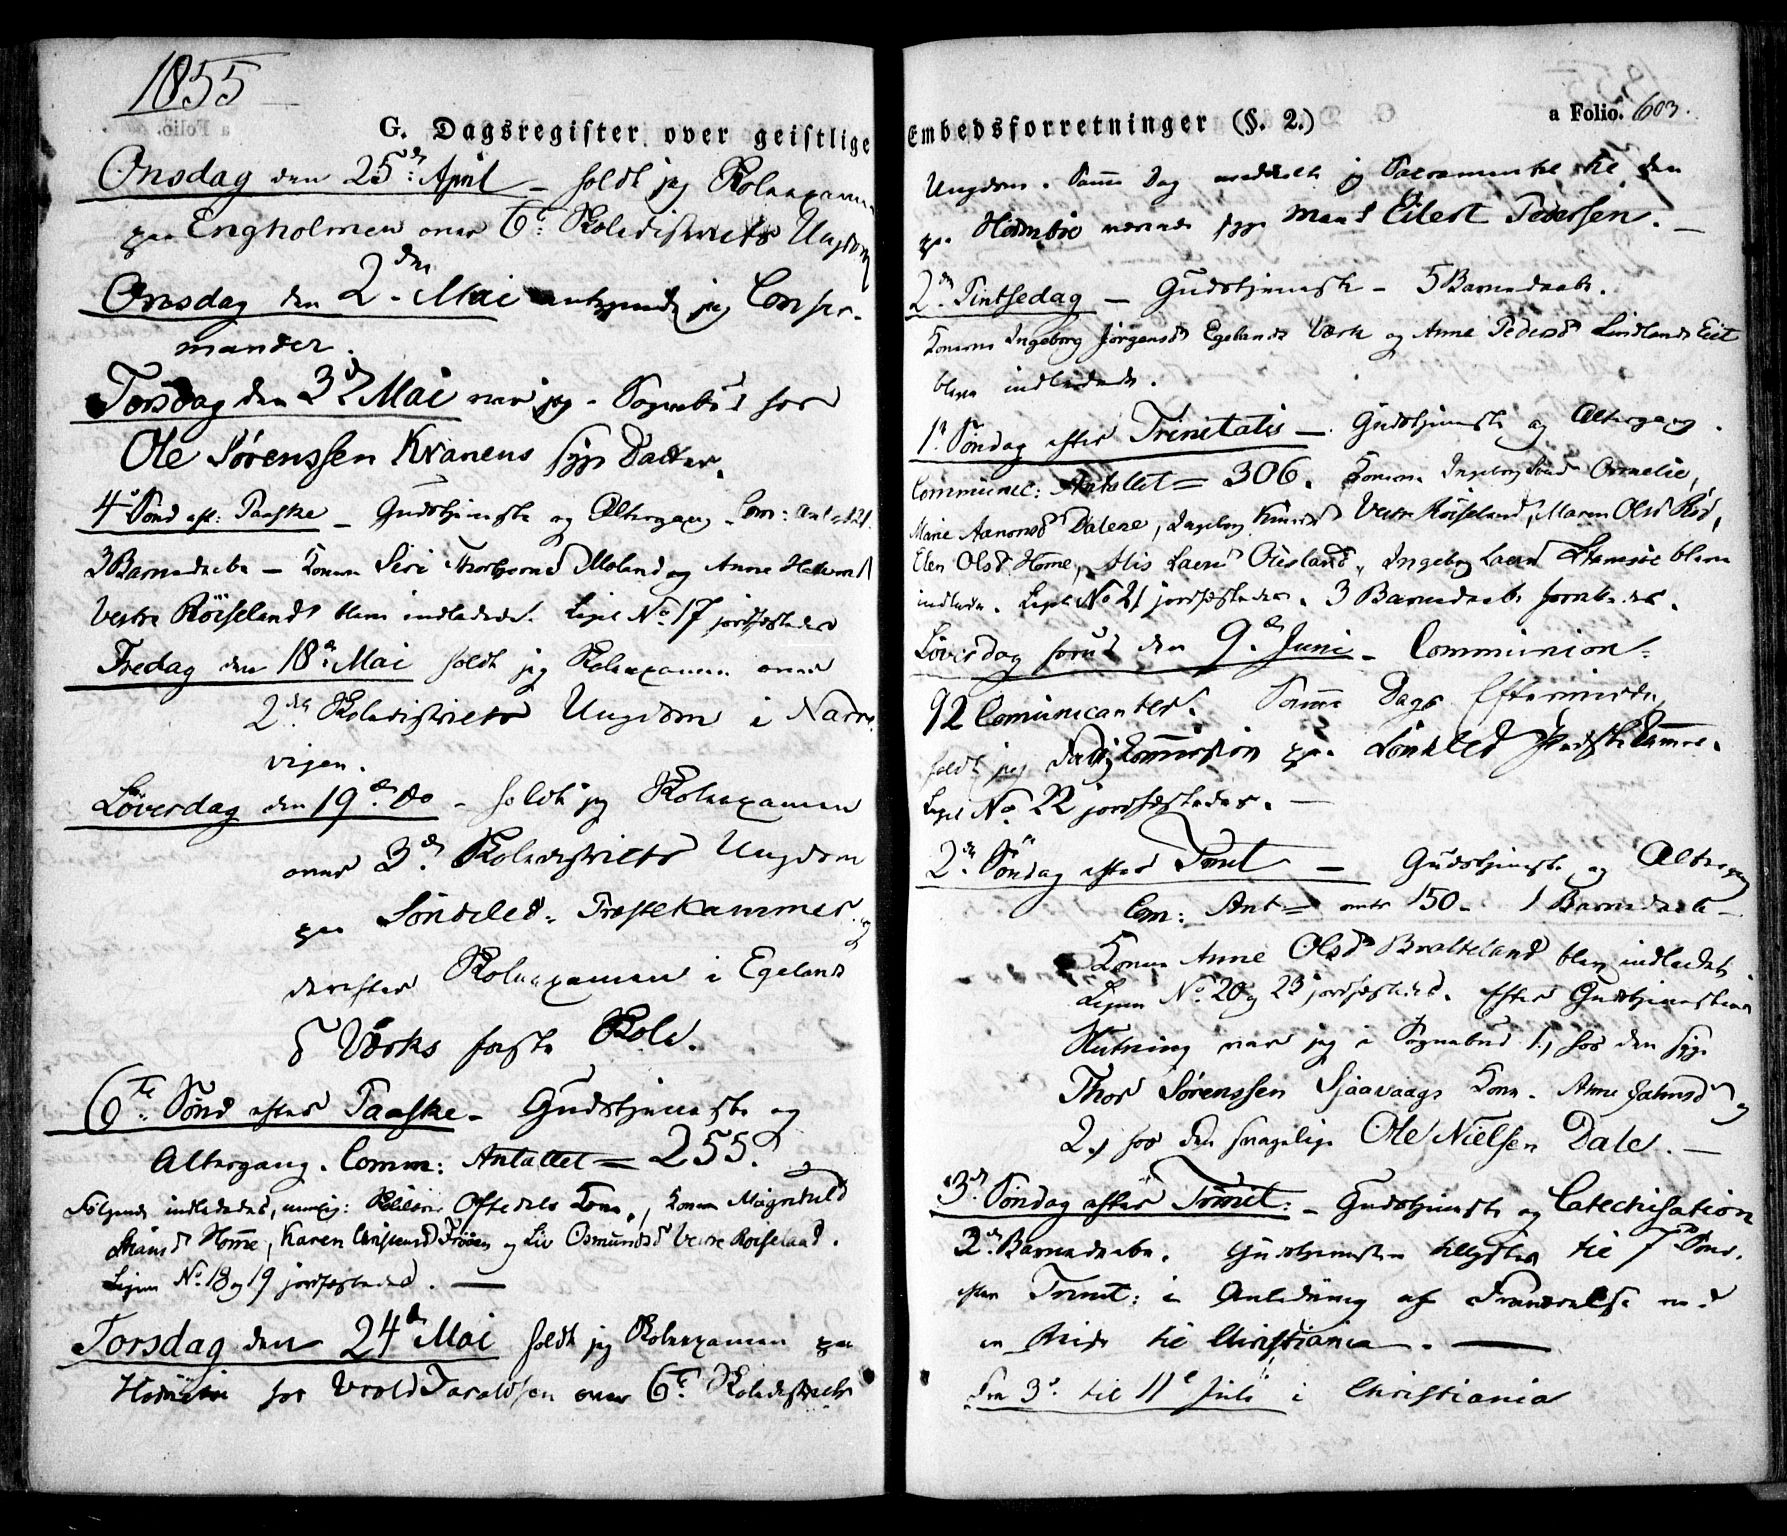 1855
G. Dagsregister over geistlige
Onsdag den 25de April – holdt jeg Skoleexamen
paa Engholmen over 6te Skoledistricts Ungdom
Onsdag den 2den Mai antegnede jeg Confir-
mander.
Torsdag den 3die Mai var jeg i Sognebud hos
Ole Sørenssen Kranens syge Datter.
4de Sønd eft: Paaske – Gudstjeneste og Altergang. Com: Ant = 121.
3 Barnedaabe – Konen Siri Thorbjørnsd Moland og Anne
Vestre Röiseland bleve indledede. Liget No 17 jordfæstedes
Fredag den 18de Mai holdt jeg Skoleexamen over
2det Skoledistricts Ungdom i Narre-
vigen.
Löverdag den 19de do – holdt jeg Skoleexamen
over 3die Skoledistricts Ungdom
paa Söndeled Præstekammer og
derefter Skoleexamen i Egelands
Værks faste Skole.
6te Sönd efter Paaske – Gudstjeneste og
Altergang. Comm: Antallet = 255.
Følgende indlededes, nemlig: Oftedals Kone, Konen Magnhild
Home, Karen Christensd Frøen og Liv Osmundsd Vestre Roiseland.
Ligene No 18 og 19 jordfæstedes. —
Torsdag den 24de Mai holdt jeg Skoleexamen paa
hos Vrold Taraldsen over 6te Skoledistricts
Embedsforretninger (§. 2.)
a Folio. 603.
Ungdom. Samme Dag meddelte jeg Sacramentet til den
paa værende syge Mand Eilert Pedersen. —
2den Pintsedag – Gudstjeneste – 5 Barnedaabe.
Konerne Ingeborg Jörgensd Egelands Værk og Anne Pedersd Lindland Eiet
bleve indledede.
1ste Söndag efter Trinitatis — Gudstjeneste og Altergang.
Communic: Antallet = 306. Konerne Ingeborg
Marie Aanonsd Dalene, Ingeborg Knudsd Vestre Röiseland, Maren Olsd Röd,
Elen Olsd Home, Alis Larsd, Ingeborg Larsd bleve
indledede. Liget No 21 jordfæstedes. 3 Barnedaabe forrettedes.
Løverdag forud den 9de Juni – Communion –
92 Comunicantes. Samme Dags Eftermiddag
holdt jeg Fattigkommission paa Söndeled Præstekammer.
Liget No 22 jordfæstedes. —
2den Söndag efter Trinit — Gudstjeneste og Altergang
Com: Ant = over 150 – 1 Barnedaab –
Konen Anne Olsd Bratteland blev indledet.
Ligene No 20 og 23 jordfæstedes. Efter Gudstjenestens
Slutning var jeg i Sognebud 1, hos den syge
Thor Sörenssen Sjaavaags Kone Anne Jahnsd og
2, hos den svagelige Ole Nielsen Dale. —
3die Söndag efter Trinit: – Gudstjeneste og Catechisation
2 Barnedaabe. Gudstjenesten tillystes til 7de Sønd.
efter Trinit: i Anledning af Fraværelse ved
en Reise til Christiania. —
Fra 3die til 11te Juli i Christiania